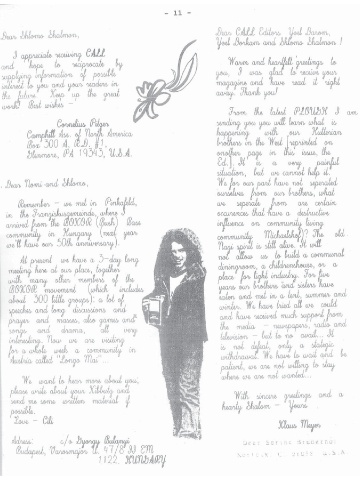 - 11 -
Dear Shlomo Shalmon,
I appreciate receiving CALL
and hope to reciprocate by
supplying information of possible
interest to you and your readers in
the future. Keep up the great
work! Best wishes -
Cornelius Pilger
Camphill Ass. of North America
Box 300 A, R.D. #1,
Glenmore, PA 19343, U.S.A.
Dear Nomi and Shlomo,
Remember - we met in Pinkafeld,
in the Franziskusgemeinde, where I
arrived from the BOKOR (Bush) Base
community in Hungary (next year
we'll have our 50th anniversary).
At present we have a 3-day long
meeting here at our place, together
with many other members of the
BOKOR movement (which includes
about 300 little groups): a lot of
speeches and long discussions and
prayer and masses, also games and
songs and drama, all very
interesting. Now we are visiting
for a whole week a community in
Austria called "Longo Mai"...
We want to hear more about you,
please write about your Kibbutz and
send me some written material if
possible.
Love - Edi
Adress: c/o Gyorgy Bulanyi
Budapest, Varosmajor U. 47/B II EM
1122, HUNGARY
Dear CALL Editors, Yoel Darom,
Yoel Dorkam and Shlomo Shalmon!
Warm and heartfelt greetings to
you. I was glad to receive your
magazine and have read it right
away. Thank you!
From the latest PLOUGH I am
sending you you will learn what is
happening with our Hutterian
brothers in the West (reprinted on
another page in this issue, the
Ed.). It is a very painful
situation, but we cannot help it.
We for our part have not separated
ourselves from our brothers, what
we separate from are certain
occurences that have a destructive
influence on community living.
community Michaelshof)? The old
Nazi spirit is still alive. It will
not allow us to build a communal
diningroom, a childrenshouse, or a
place for light industry. For five
years our brothers and sisters have
eaten and met in a tent, summer and
winter. We have tried all we could
and have received much support from
the media - newspapers, radio and
television - but to no avail... It
is not defeat, only a strategic
withdrawal. We have to wait and be
patient, we are not willing to stay
where we are not wanted...
With sincere greetings and a
hearty Shalom - Yours
Klaus Meyer
Deer Spring Bruderhof
Norfolk, 06058 U.S.A.